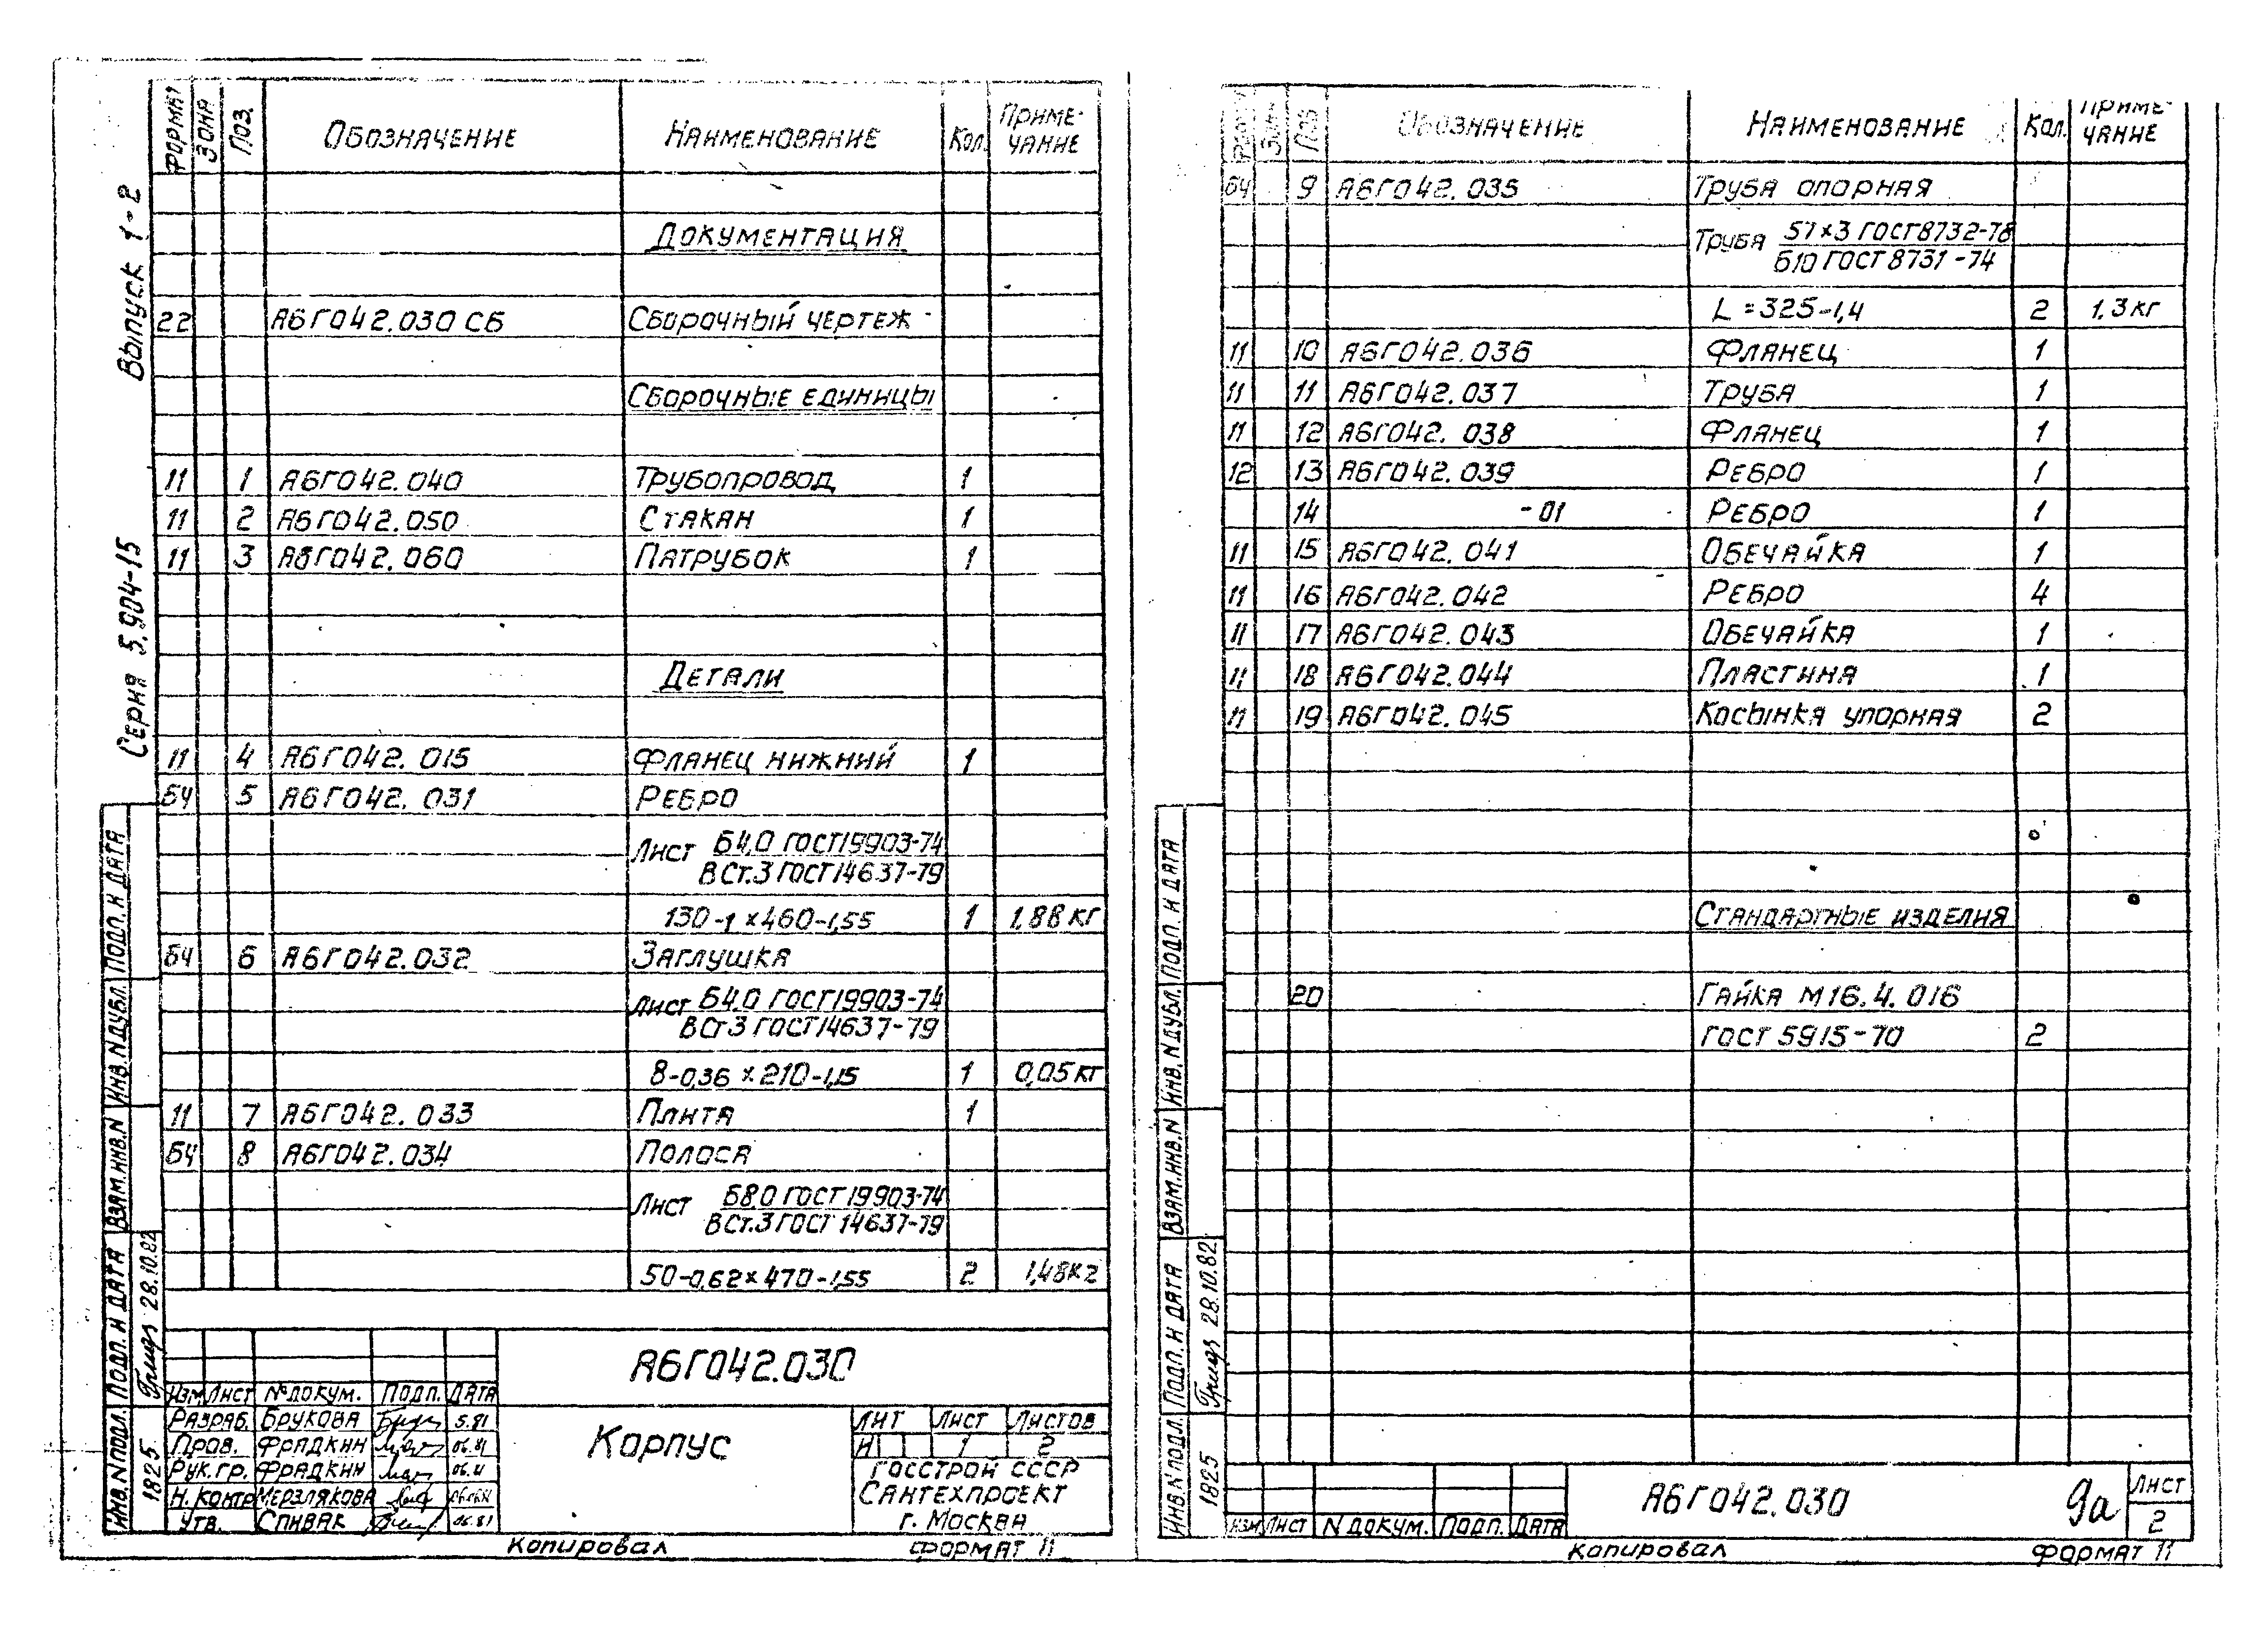 Серия 5.904-15 Выпуск 1-2
Формат Зона Поз. Обозначение Наименование Кол. Примечание
Документация
22 А6Г042.030 СБ Сборочный чертеж
Сборочные единицы
11 1 А6Г042.040 Трубопровод 1
11 2 А6Г042.050 Стакан 1
11 3 А8Г042.060 Патрубок 1
Детали
11 4 А6Г042.015 Фланец нижний 1
БЧ 5 А6Г042.031 Ребро
Лист Б4,0 ГОСТ19903-74
ВСт.3 ГОСТ14637-79
130-1 х 460-1,55 1 1,88 кг
БЧ 6 А6Г042.032 Заглушка
Лист Б4.0 ГОСТ19903-74
ВСт3 ГОСТ14637-79
8-0,36 х 210-1,15 1 0,05 кг
11 7 А6Г042.033 Плита 1
БЧ 8 А6Г042.034 Полоса
Лист Б8.0 ГОСТ19903-74
ВСт.3 ГОСТ 14637-79
50-0,62 х 470-1,55 2 1,48 кг
Инв.N подл. Подп. и дата Взам.инв.N Инв.N дубл. Подп. и дата
1825 28.10.82
А6Г042.030
Изм. Лист № докум. Подп. Дата
Разраб. Брукова 5.81
Пров. Фрадкин 06.81
Рук.гр. Фрадкин
Н.контр Мерзлякова
Утв. Спивак 06.81
Корпус
Лит Лист Листов
И 1 2
Госстрой СССР
Сантехпроект
г. Москва
Копировал Формат 11
Формат Зона Поз Обозначение Наименование Кол. Примечание
БЧ 9 А6Г042.035 Труба опорная
Труба 57х3 ГОСТ8732-78
Б10 ГОСТ 8731-74
L=325-1,4 2 1,3 кг
11 10 А6Г042.036 Фланец 1
11 11 А6Г042.037 Труба 1
11 12 А6Г042.038 Фланец 1
12 13 А6Г042.039 Ребро 1
14 -01 Ребро 1
11 15 А6Г042.041 Обечайка 1
11 16 А6Г042.042 Ребро 4
11 17 А6Г042.043 Обечайка 1
11 18 А6Г042.044 Пластина 1
11 19 А6Г042.045 Косынка упорная 2
Стандартные изделия
20 Гайка М16.4.016
ГОСТ 5915-70 2
Инв.N подл. Подп. и дата Взам.инв.N Инв.N дубл. Подп. и дата
1825 28.10.82
Изм Лист N докум. Подп. Дата
А6Г042.030
9а
Лист
2
Копировал Формат 11